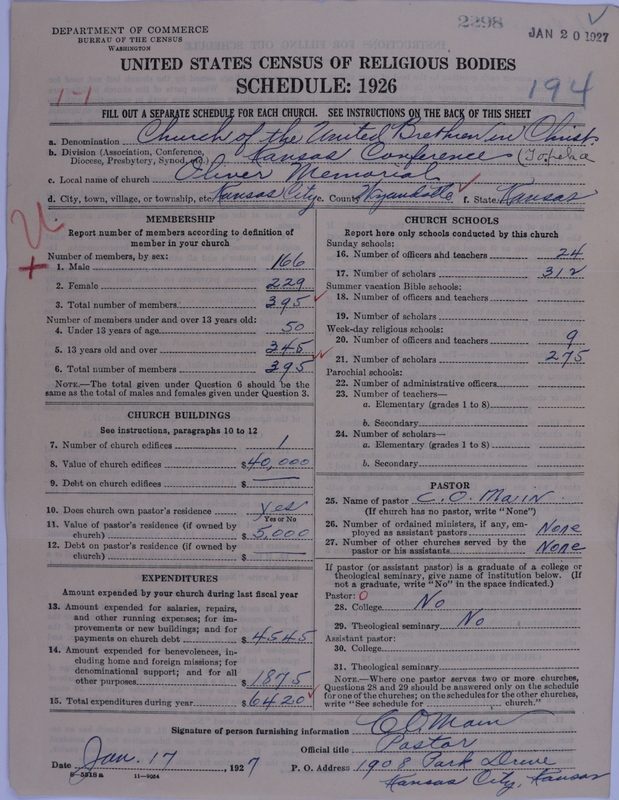 2298
DEPARTMENT OF COMMERCE
BUREAU OF THE CENSUS
WASHINGTON
JAN 20 1927
UNITED STATES CENSUS OF RELIGIOUS BODIES
SCHEDULE: 1926
1-1
194
FILL OUT A SEPARATE SCHEDULE FOR EACH CHURCH. SEE INSTRUCTIONS ON THE BACK OF THIS SHEET
a. Denomination Church of the United Brethren in Christ.
b. Division (Association, Conference, Diocese, Presbytery, Synod, etc.) Kansas Conference (Topeka
c. Local name of church Oliver Memorial
d. City, town, village, or township, etc. Kansas City e. County Wyandotte f. State Kansas
MEMBERSHIP
Report number of members according to definition of
member in your church
Number of members, by sex:
1. Male 166
2. Female 229
3. Total number of members 395
Number of members under and over 13 years old:
4. Under 13 years of age 50
5. 13 years old and over 345
6. Total number of members 395
NOTE.—The total given under Question 6 should be the
same as the total of males and females given under Question 3.
CHURCH BUILDINGS
See instructions, paragraphs 10 to 12
7. Number of church edifices 1
8. Value of church edifices $40,000
9. Debt on church edifices $ —
10. Does church own pastor's residence yes
Yes or No
11. Value of pastor's residence (if owned by
church) $5,000
12. Debt on pastor's residence (if owned by
church) $
EXPENDITURES
Amount expended by your church during last fiscal year
13. Amount expended for salaries, repairs,
and other running expenses; for im-
provements or new buildings; and for
payments on church debt $4545
14. Amount expended for benevolences, in-
cluding home and foreign missions; for
denominational support; and for all
other purposes $1875
15. Total expenditures during year $6420
CHURCH SCHOOLS
Report here only schools conducted by this church
Sunday schools:
16. Number of officers and teachers 24
17. Number of scholars 312
Summer vacation Bible schools:
18. Number of officers and teachers
19. Number of scholars
Week-day religious schools:
20. Number of officers and teachers 9
21. Number of scholars 275
Parochial schools:
22. Number of administrative officers
23. Number of teachers—
a. Elementary (grades 1 to 8)
b. Secondary
24. Number of scholars—
a. Elementary (grades 1 to 8)
b. Secondary
PASTOR
25. Name of pastor C. O. Main
(If church has no pastor, write "None")
26. Number of ordained ministers, if any, em-
ployed as assistant pastors None
27. Number of other churches served by the
pastor or his assistants None
If pastor (or assistant pastor) is a graduate of a college or
theological seminary, give name of institution below. (If
not a graduate, write "No" in the space indicated.)
Pastor: 0
28. College No
29. Theological seminary No
Assistant pastor:
30. College
31. Theological seminary
NOTE.—Where one pastor serves two or more churches,
Questions 28 and 29 should be answered only on the schedule
for one of the churches; on the schedules for the other churches,
write "See schedule for ________, ____ church."
Signature of person furnishing information C O Main
Official title Pastor
Date Jan. 17, 1927 P. O. Address 1908 Park Drive
8—5318 a 11—9054
Kansas City, Kansas